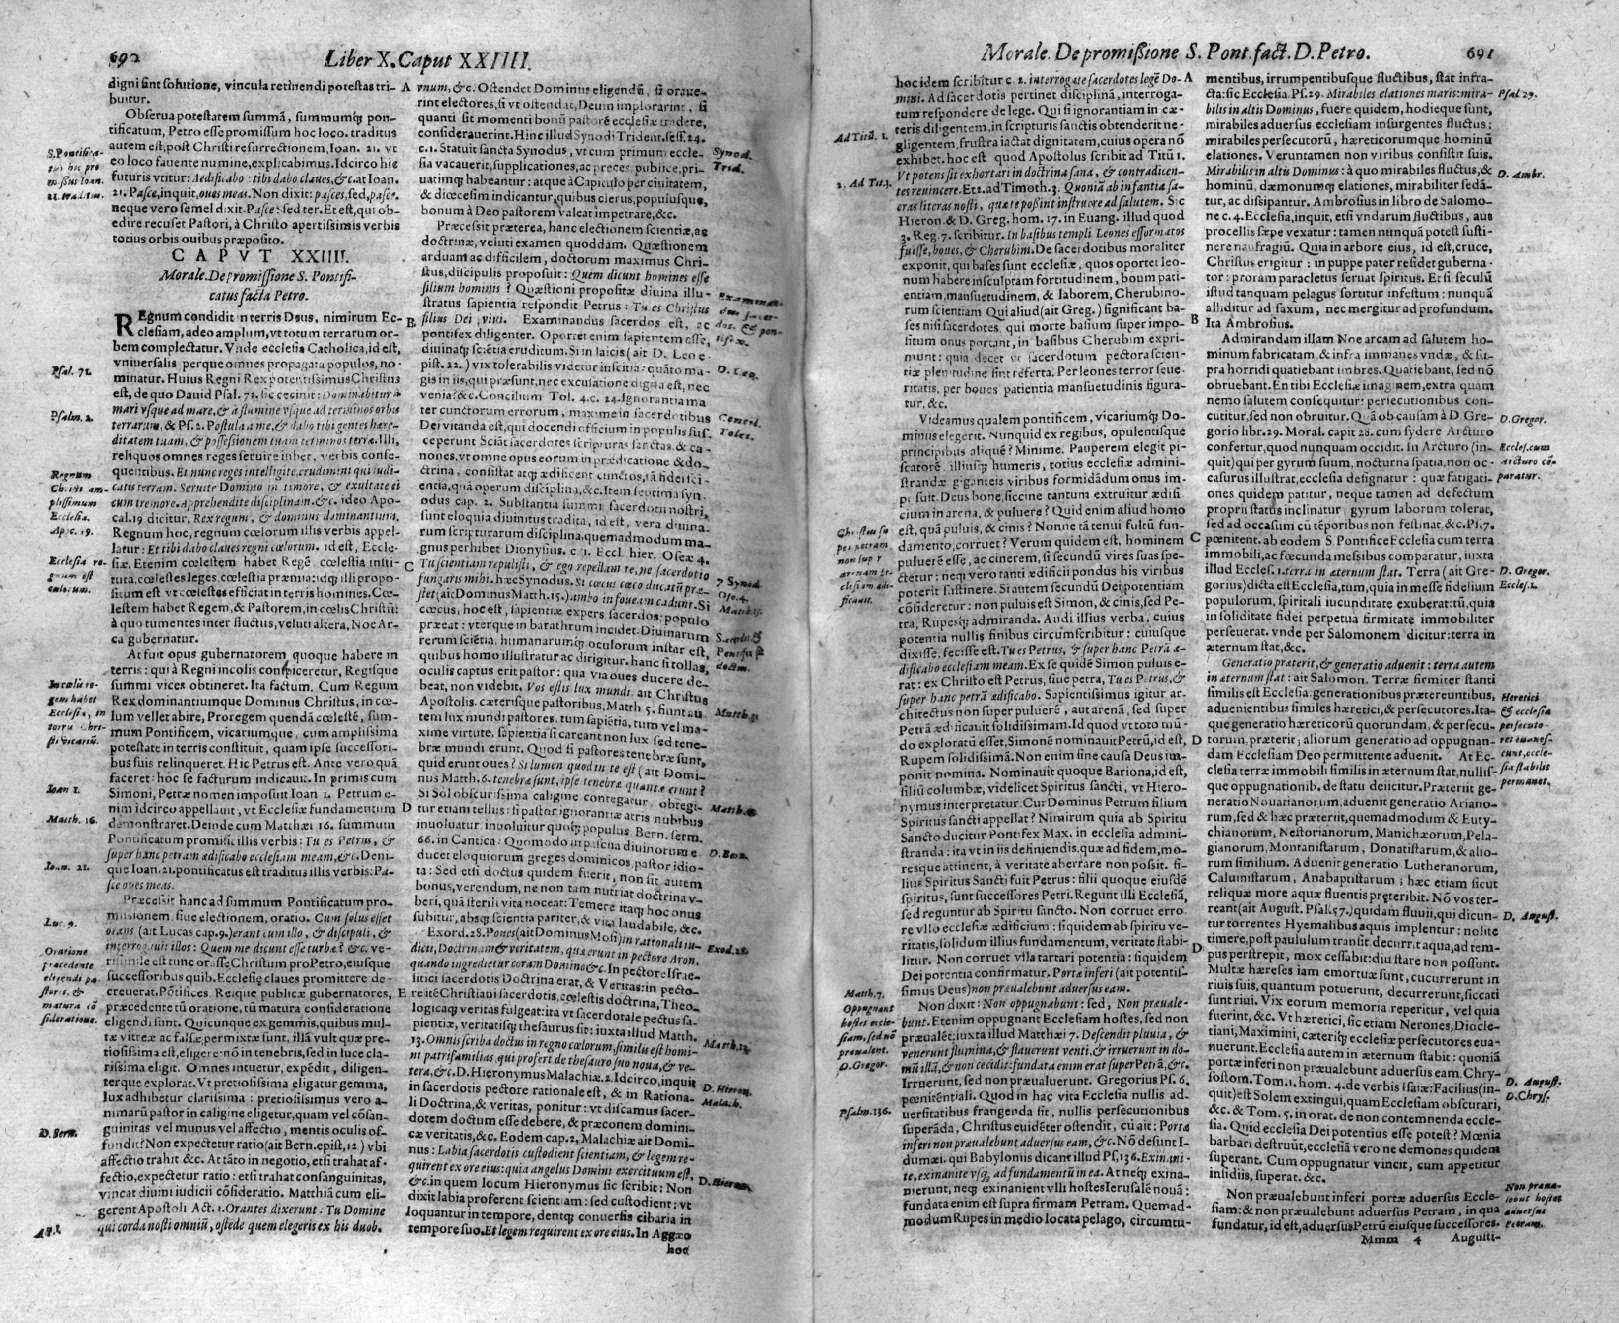 692
Liber X. Caput XXIIII.
digni sint solutione, vincula retinendi potestas tri-
buitur.
Obserua potestatem summã, summumq́; pon-
tificatum, Petro esse promissum hoc loco. traditus
autem est, post Christi resurrectionem, Ioan. 21. vt
eo loco fauente numine, explicabimus. Idcirco hic
futuris vtitur: Aedificabo: tibi dabo claues, &c. at Ioan.
21. Pasce, inquit, oues meas. Non dixit: pasces, sed, pasce.
neque vero semel dixit. Pasce: sed ter. Et est, qui ob-
edire recuset Pastori, à Christo apertissimis verbis
totius orbis ouibus præposito.
CAPVT XXIIII.
Morale. De promissione S. Pontifi-
catus facta Petro.
REgnum condidit in terris Deus, nimirum Ec-
clesiam, adeo amplum, vt totum terrarum or-
bem complectatur. Vnde ecclesia Catholica, id est,
vniuersalis perque omnes propagata populos, no-
minatur. Huius Regni Rex potentissimus Christus
est, de quo Dauid Psal. 71. sic cecinit: Dominabitur a
mari vsque ad mare, & a flumine vsque ad terminos orbis
terrarum. & Ps. 2. Postula a me, & dabo tibi gentes hære-
ditatem tuam, & possessionem tuam terminos terræ. Illi,
reliquos omnes reges seruire iubet, verbis conse-
quentibus. Et nunc reges intelligite, erudimini qui iudi-
catis terram. Seruite Domino in timore, & exultate ei
cum tremore. Apprehendite disciplinam, &c. ideo Apo-
cal. 19 dicitur, Rex regum, & dominus dominantium.
Regnum hoc, regnum cœlorum illis verbis appel-
latur: Et tibi dabo claues regni cœlorum. id est, Eccle-
siæ. Etenim cœlestem habet Regẽ ecclesia insti-
tuta, cœlestes leges, cœlestia præmia: idq́; illi propo-
situm est vt cœlestes efficiat in terris homines. Cœ-
lestem habet Regem, & Pastorem, in cœlis Christũ:
à quo tumentes inter fluctus, veluti altera, Noe Ar-
ca gubernatur.
At fuit opus gubernatorem quoque habere in
terris: qui à Regni incolis conspiceretur, Regisque
summi vices obtineret. Ita factum. Cum Regum
Rex dominantiumque Dominus Christus, in cœ-
lum vellet abire, Proregem quendã cœlestẽ, sum-
mum Pontificem, vicariumque, cum amplissima
potestate in terris constituit, quam ipse successori-
bus suis relinqueret. Hic Petrus est. Ante vero quã
faceret: hoc se facturum indicauit. In primis cum
Simoni, Petræ nomen imposuit Ioan 1. Petrum e-
nim idcirco appellauit, vt Ecclesiæ fundamentum
demonstraret. Deinde cum Matthæi 16. summum
Pontificatum promisit illis verbis: Tu es Petrus, &
super hanc petram ædificabo ecclesiam meam, &c. Deni-
que Ioan. 21. pontificatus est traditus illis verbis: Pa-
sce oues meas.
Præcessit hanc ad summum Pontificatum pro-
missionem, siue electionem, oratio. Cum solus esset
orans (ait Lucas cap. 9.) erant cum illo, & discipuli, &
interrogauit illos: Quem me dicunt esse turbæ? &c. ve-
risimile est tunc orasse Christum pro Petro, eiusque
successoribus quib. Ecclesię claues promittere de-
creuerat. Põtifices. Reique publicæ gubernatores,
præcedente tũ oratione, tũ matura consideratione
eligendi sunt. Quicunque ex gemmis, quibus mul-
tæ vitreæ ac falsæ permixtæ sunt, illã vult quæ pre-
tiosissima est, eligere: nõ in tenebris, sed in luce cla-
rissima eligit. Omnes intuetur, expẽdit, diligen-
terque explorat. Vt pretiosissima eligatur gemma,
lux adhibetur clarissima: pretiosissimus vero a-
nimarũ pastor in caligine eligetur, quam vel cõsan-
guinitas vel munus vel affectio, mentis oculis of-
fundit? Non expectetur ratio (ait Bern. epist. 12) vbi
affectio trahit &c. At tãto in negotio, etsi trahat af-
fectio, expectetur ratio: etsi trahat consanguinitas,
vincat diuini iudicii cõsideratio. Matthiã cum eli-
gerent Apostoli Act. 1. Orantes dixerunt: Tu Domine
qui corda nosti omniũ, ostẽde quem elegeris ex his duob.
S. Pontifica-
tus hic pro
missus Ioan.
21. traditus.
Psal. 71.
Psalm. 2.
Regnum
Christi am-
plissimum
Ecclesia.
Apoc. 19.
Ecclesia re-
gnum est
cœlorum.
In cœlis re-
gem habet
Ecclesia, in
terra Chri-
sti vicariũ.
Ioan 1.
Matth. 16.
Ioan. 21.
Luc. 9.
Oratione
præcedente
eligendi pa
stores, &
matura cõ
sideratione.
D. Bern.
A
B
C
D
E
vnum, &c. Ostendet Dominus eligendũ, si oraue-
rint electores, si vt ostendat, Deum implorarint, si
quanti sit momenti bonũ pastorẽ ecclesiæ tradere,
considerauerint. Hinc illud Synodi Trident. sess. 24.
c. 1. Statuit sancta Synodus, vt cum primum eccle-
sia vacauerit, supplicationes, ac preces publice, pri-
uatimq́; habeantur: atque à Capitulo per ciuitatem,
& diœcesim indicantur, quibus clerus, populusque,
bonum à Deo pastorem valeat impetrare, &c.
Præcessit præterea, hanc electionem scientiæ, ac
doctrinæ, veluti examen quoddam. Quæstionem
arduam ac difficilem, doctorum maximus Chri-
stus, discipulis proposuit: Quem dicunt homines esse
filium hominis? Quæstioni propositæ diuina illu-
stratus sapientia respondit Petrus: Tu es Christus
filius Dei viui. Examinandus sacerdos est, ac
pontifex diligenter. Oportet enim sapientem esse,
diuinaq́; sciẽtia eruditum. Si in laicis (ait D. Leo e-
pist. 22.) vix tolerabilis videtur inscitia: quãto ma-
gis in iis, qui præsunt, nec excusatione digna est, nec
venia? &c. Concilium Tol. 4. c. 24. Ignorantia ma
ter cunctorum errorum, maxime in sacerdotibus
Dei vitanda est, qui docendi officium in populis sus-
ceperunt Sciãt sacerdotes scripturas sanctas, & ca-
nones, vt omne opus eorum in prædicatione & do-
ctrina, consistat atq́; ædificent cunctos, tã fidei sci-
entia, quã operum disciplina, &c. Item septima syn-
odus cap. 2. Substantia summi sacerdotii nostri,
sunt eloquia diuinitus tradita, id est, vera diuina-
rum scripturarum disciplina, quemadmodum ma-
gnus perhibet Dionysius. c 1. Eccl. hier. Oseæ 4.
Tu scientiam repulisti, & ego repellam te, ne sacerdotio
fungaris mihi. hæc Synodus. Si cœcus cœco ducatũ præ-
stet (ait Dominus Matth. 15.) ambo in foueam cadunt. Si
cœcus, hoc est, sapientiæ expers sacerdos; populo
præeat: vterque in barathrum incidet. Diuinarum
rerum sciẽtia, humanarumq́; oculorum instar est,
quibus homo illustratur ac dirigitur. hanc si tollas,
oculis captus erit pastor: qua via oues ducere de-
beat, non videbit. Vos estis lux mundi, ait Christus
Apostolis, cæterisque pastoribus, Matth. 5. fiunt au-
tem lux mundi pastores, tum sapiẽtia, tum vel ma-
xime virtute. sapientia si careant non lux sed tene-
bræ mundi erunt. Quod si pastores tenebræ sunt,
quid erunt oues? Si lumen quod in te est (ait Domi-
nus Matth. 6. tenebræ sunt, ipsæ tenebræ quantæ erunt?
Si Sol obscurissima caligine contegatur, obtegi-
tur etiam tellus: si pastor ignorantiæ atris nubibus
inuoluatur inuoluitur quoq́; populus. Bern. serm.
66. in Cantica: Quomodo in pascua diuinorum e-
ducet eloquiorum greges dominicos, pastor idio-
ta: Sed etsi doctus quidem fuerit, non sit autem
bonus, verendum, ne non tam nutriat doctrina v-
beri, quã sterili vita noceat: Temere itaq́; hoc onus
subitur, absq́; scientia pariter, & vita laudabile, &c.
Exord. 28. Pones (ait Dominus Mosi) in rationali iu-
dicii, Doctrinam & veritatem, quæ erunt in pectore Aron.
quando ingredietur coram Domino &c. In pectore Israe-
litici sacerdotis Doctrina erat, & Veritas: in pecto-
re itẽ Christiani sacerdotis, cœlestis doctrina, Theo-
logicaq́; veritas fulgeat: ita vt sacerdotale pectus sa-
pientiæ, veritatisq́; thesaurus sit: iuxta illud Matth.
13. Omnis scriba doctus in regno cœlorum, similis est homi-
ni patrifamilias, qui profert de thesauro suo noua, & ve-
tera, &c. D. Hieronymus Malachiæ 2. Idcirco, inquit
in sacerdotis pectore rationale est, & in Rationa-
li Doctrina, & veritas, ponitur: vt discamus sacer-
dotem doctum esse debere, & præconem domini-
cæ veritatis, &c. Eodem cap. 2, Malachiæ ait Domi-
nus: Labia sacerdotis custodient scientiam, & legem re-
quirent ex ore eius: quia angelus Domini exercituum est,
&c. in quem locum Hieronymus sic scribit: Non
dixit labia proferent scientiam: sed custodient: vt
loquantur in tempore, dentq́; conseruis cibaria in
tempore suo. Et legem requirent ex ore eius. In Aggæo
hoc
Synod.
Trid.
Examinan-
dus sacer-
dos, & pon-
tifex.
D. Leo.
Concil.
Tolet.
7 Synod.
Ose. 4.
Matth. 15.
Matth. 5
Matth. 6.
D. Bern.
Exod. 28.
Matth. 13.
D. Hieron.
Malach.
D. Hieron.
Morale. De promissione S. Pont. fact. D. Petro.
691
hoc idem scribitur c. 2. interrogate sacerdotes legẽ Do-
mini. Ad sacerdotis pertinet disciplinã, interroga-
tum respondere de lege. Qui si ignorantiam in cæ-
teris diligentem, in scripturis sanctis obtenderit ne-
gligentem, frustra iactat dignitatem, cuius opera nõ
exhibet. hoc est quod Apostolus scribit ad Titũ 1.
Vt potens sit exhortari in doctrina sana, & contradicen-
tes reuincere. Et 2. ad Timoth. 3. Quoniã ab infantia sa-
cras literas nosti, quæ te possint instruere ad salutem. Sic
Hieron. & D. Greg. hom. 17. in Euang. illud quod
3. Reg. 7. scribitur. In basibus templi Leones efformatos
fuisse, boues, & Cherubim. De sacerdotibus moraliter
exponit, qui bases sunt ecclesiæ, quos oportet leo-
num habere insculptam fortitudinem, boum pati-
entiam, mansuetudinem, & laborem, Cherubino-
rum scientiam Qui aliud (ait Greg.) significant ba-
ses nisi sacerdotes, qui morte basium super impo-
situm onus portant, in basibus Cherubim expri-
munt: quia decet vt sacerdotum pectora scien-
tiæ plenitudine sint referta. Per leones terror seue-
ritatis, per boues patientia mansuetudinis figura-
tur, &c.
Videamus qualem pontificem, vicariumq́; Do-
minus elegerit. Nunquid ex regibus, opulentisque
principibus aliquẽ? Minime. Pauperem elegit pi-
scatorẽ, illiusq́; humeris, totius ecclesiæ admini-
strandæ giganteis viribus formidãdum onus im-
posuit. Deus bone, siccine tantum extruitur ædifi
cium in arena, & puluere? Quid enim aliud homo
est, quã puluis, & cinis? Nonne tã tenui fulcũ fun-
damento, corruet? Verum quidem est, hominem
puluerẽ esse, ac cinerem, si secundũ vires suas spe-
ctetur: neq́; vero tanti ædificii pondus his viribus
poterit sustinere. Si autem secundũ Dei potentiam
cõsideretur: non puluis est Simon, & cinis, sed Pe-
tra, Rupesq́; admiranda. Audi illius verba, cuius
potentia nullis finibus circumscribitur: cuiusque
dixisse, fecisse est. Tu es Petrus, & super hanc Petrã æ-
dificabo ecclesiam meam. Ex se quidẽ Simon puluis e-
rat: ex Christo est Petrus, siue petra, Tu es Petrus, &
super hanc petrã ædificabo. Sapientissimus igitur ar-
chitectus non super puluerẽ, aut arenã, sed super
Petrã ædificauit solidissimam. Id quod vt toto mũ-
do exploratũ esset, Simonẽ nominauit Petrũ, id est,
Rupem solidissimã. Non enim sine causa Deus im-
ponit nomina. Nominauit quoque Bariona, id est,
filiũ columbæ, videlicet Spiritus sancti, vt Hiero-
nymus interpretatur. Cur Dominus Petrum filium
Spiritus sancti appellat? Nimirum quia ab Spiritu
Sancto ducitur Pontifex Max. in ecclesia admini-
stranda: ita vt in iis definiendis, quæ ad fidem, mo-
resque attinent, à veritate aberrare non possit. fi-
lius Spiritus Sancti fuit Petrus: filii quoque eiusdẽ
spiritus, sunt successores Petri. Regunt illi Ecclesiã,
sed reguntur ab Spiritu sancto. Non corruet erro
re vllo ecclesiæ ædificium: siquidem ab spiritu ve-
ritatis, solidum illius fundamentum, veritate stabi-
litur. Non corruet vlla tartari potentia: siquidem
Dei potentia confirmatur. Portæ inferi (ait potentis-
simus Deus) non præualebunt aduersus eam.
Non dixit: Non oppugnabunt: sed, Non præuale-
bunt. Etenim oppugnant Ecclesiam hostes, sed non
præualẽt: iuxta illud Matthæi 7. Descendit pluuia, &
venerunt flumina, & flauerunt venti, & irruerunt in do-
mũ illã, & non cecidit: fundata enim erat super Petrã, &c.
Irruerunt, sed non præualuerunt. Gregorius Ps. 6.
pœnitẽtiali. Quod in hac vita Ecclesia nullis ad-
uersitatibus frangenda sit, nullis persecutionibus
superãda, Christus euidẽter ostendit, cũ ait: Portæ
inferi non præualebunt aduersus eam, &c. Nõ desunt I-
dumæi, qui Babyloniis dicant illud Ps. 136. Exinani-
te, exinanite vsq́; ad fundamentũ in ea. At neq́; exina-
nierunt, neq́; exinanient vlli hostes Ierusalẽ nouã:
fundata enim est supra firmam Petram. Quemad-
modum Rupes in medio locata pelago, circumtu-
Ad Titũ. 1.
2. Ad Tit. 3.
Christus su
per petram
non sup r
arenam ec-
clesiam ædi-
ficauit.
Matth. 7.
Oppugnant
hostes eccle-
siam, sed nõ
præualent.
D. Gregor.
Psalm. 136.
A
B
C
D
D
mentibus, irrumpentibusque fluctibus, stat infra-
cta: sic Ecclesia. Ps. 29. Mirabiles elationes maris: mira-
bilis in altis Dominus, fuere quidem, hodieque sunt,
mirabiles aduersus ecclesiam insurgentes fluctus:
mirabiles persecutorũ, hæreticorumque hominũ
elationes. Veruntamen non viribus consistit suis.
Mirabilis in altis Dominus: à quo mirabiles fluctus, &
hominũ, dæmonumq́; elationes, mirabiliter sedã-
tur, ac dissipantur. Ambrosius in libro de Salomo-
ne c. 4. Ecclesia, inquit, etsi vndarum fluctibus, aut
procellis sæpe vexatur: tamen nunquã potest susti-
nere naufragiũ. Quia in arbore eius, id est, cruce,
Christus erigitur: in puppe pater residet guberna-
tor: proram paracletus seruat spiritus. Et si seculũ
istud tanquam pelagus sortitur infestum: nunquã
alliditur ad saxum, nec mergitur ad profundum.
Ita Ambrosius.
Admirandam illam Noe arcam ad salutem ho-
minum fabricatam, & infra immanes vndæ, & su-
pra horridi quatiebant imbres. Quatiebant, sed nõ
obruebant. En tibi Ecclesiæ imaginem, extra quam
nemo salutem consequitur: persecutionibus con-
cutitur, sed non obruitur. Quã ob causam à D. Gre-
gorio libr. 29. Moral. capit 28. cum sydere Arcturo
confertur, quod nunquam occidit. In Arcturo (in-
quit) qui per gyrum suum, nocturna spatia, non oc-
casurus illustrat, ecclesia designatur: quæ fatigati-
ones quidem patitur, neque tamen ad defectum
proprii status inclinatur: gyrum laborum tolerat,
sed ad occasum cũ tẽporibus non festinat, &c. Ps. 7.
pœnitent. ab eodem S. Pontifice Ecclesia cum terra
immobili, ac fœcunda messibus comparatur, iuxta
illud Eccles. 1. terra in æternum stat. Terra (ait Gre-
gorius) dicta est Ecclesia, tum, quia in messe fidelium
populorum, spiritali iucunditate exuberat: tũ, quia
in soliditate fidei perpetua firmitate immobiliter
perseuerat. vnde per Salomonem dicitur: terra in
æternum stat, &c.
Generatio præterit, & generatio aduenit: terra autem
in æternum stat: ait Salomon. Terræ firmiter stanti
similis est Ecclesia: generationibus prætereuntibus,
aduenientibus similes hæretici, & persecutores. Ita-
que generatio hæreticorũ quorundam, & persecu-
torum, præterit; aliorum generatio ad oppugnan-
dam Ecclesiam Deo permittente aduenit. At Ec-
clesia terræ immobili similis in æternum stat, nullis-
que oppugnationib. de statu deiicitur. Præteriit ge-
neratio Nouatianorum, aduenit generatio Ariano-
rum, sed & hæc præteriit, quemadmodum & Euty-
chianorum, Nestorianorum, Manichæorum, Pela-
gianorum, Montanistarum, Donatistarum, & alio-
rum similium. Aduenit generatio Lutheranorum,
Caluinistarum, Anabaptistarum; hæc etiam sicut
reliquæ more aquæ fluentis præteribit. Nõ vos ter-
reant (ait August. Psal. 57.) quidam fluuii, qui dicun-
tur torrentes Hyemalibus aquis implentur: nolite
timere, post paululum transit, decurrit aqua, ad tem-
pus perstrepit, mox cessabit: diu stare non possunt.
Multæ hæreses iam emortuæ sunt, cucurrerunt in
riuis suis, quantum potuerunt, decurrerunt, siccati
sunt riui. Vix eorum memoria reperitur, vel quia
fuerint, &c. Vt hæretici, sic etiam Nerones, Diocle-
tiani, Maximini, cæteriq́; ecclesiæ persecutores eua-
nuerunt. Ecclesia autem in æternum stabit: quoniã
portæ inferi non præualebunt aduersus eam. Chry-
sostom. Tom. 1. hom. 4. de verbis Isaiæ: Facilius (in-
quit) est Solem extingui, quam Ecclesiam obscurari,
&c. & Tom. 5. in orat. de non contemnenda eccle-
sia. Quid Ecclesia Dei potentius esse potest? Mœnia
barbari destruũt, ecclesiã vero ne demones quidem
superant. Cum oppugnatur vincit, cum appetitur
insidiis, superat. &c.
Non præualebunt inferi portæ aduersus Eccle-
siam: & non præualebunt aduersus Petram, in qua
fundatur, id est, aduersus Petrũ eiusque successores.
Mmm 4
Augusti-
Psal 29.
D. Ambr.
D. Gregor.
Eccles. cum
Arcturo cõ-
paratur.
D. Gregor.
Eccles. 1.
Heretici
& ecclesiæ
persecuto-
res euanes-
cunt, eccle-
sia stabilis
permanet.
D. August.
D. August.
D. Chrys.
Non præua-
lebunt hostes
aduersus
Petram.